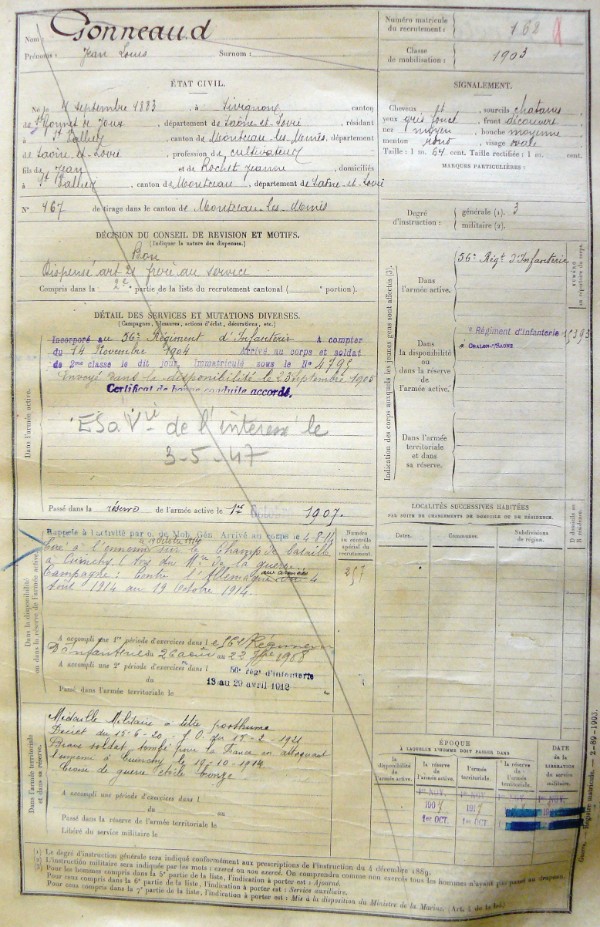 Nom : Gonneaud
Prénoms : Jean Louis Surnom :
Numéro matricule du recrutement : 162
Classe de mobilisation : 1903
ÉTAT CIVIL.
Né le 4 septembre 1883, à canton
de St Bonnet de Joux, département de Saône et Loire, résidant
à St Vallier, canton de Montceau-les-Mines, département
de Saône et Loire, profession de cultivateur
fils de Jean et de Rochet Jeanne, domiciliés
à St Vallier, canton de Montceau, département de Saône-et-Loire
N° 467 de tirage dans le canton de Montceau-les-Mines
SIGNALEMENT.
Cheveux et sourcils chatains
yeux gris foncé, front découvert
nez moyen, bouche moyenne
menton rond, visage ovale
Taille : 1 m. 64 cent. Taille rectifiée : 1 m. cent.
MARQUES PARTICULIÈRES :
Degré d'instruction : générale (1). 3
militaire (2).
DÉCISION DU CONSEIL DE REVISION ET MOTIFS.
(Indiquer la nature des dispenses.)
Bon
Dispensé art 21 frère au service
Compris dans la 2e partie de la liste du recrutement cantonal ( portion).
DÉTAIL DES SERVICES ET MUTATIONS DIVERSES.
(Campagnes, blessures, actions d'éclat, décorations, etc.)
Dans l'armée active.
Incorporé au 56e Régiment d'Infanterie A compter
du 14 Novembre 1904 Arrivé au corps et soldat
de 2me classe le dit jour. Immatriculé sous le N° 4795
Envoyé dans la disponibilité le 23 septembre 1905
Certificat de bonne conduite accordé.
de l'interess le
3-5-47
Passé dans la réserve de l'armée active le 1er 1907.
Indication des corps auxquels les jeunes gens sont affectés (3).
Dans l'armée active.
56e Régt d'Infanterie
Dans la disponibilité ou dans la réserve de l'armée active.
Régiment d'infanterie
Dans l'armée territoriale et dans sa réserve.
LOCALITÉS SUCCESSIVES HABITÉES
PAR SUITE DE CHANGEMENTS DE DOMICILE OU DE RÉSIDENCE.
Dates. Communes. Subdivisions de région.
D domicile ou R résidence.
Dans la disponibilité ou dans la réserve de l'armée active.
Rappelé à l'activité par o. de Mob. Gén. Arrivé au corps le 4.8.14
Tué à l'ennemi sur le Champ de bataille
à Cuinchy
Campagne : Contre l'Allemagne aux armées du 4
Août 1914 au 19 octobre 1914.
Numéro au contrôle spécial du recrutement.
257
A accompli une 1re période d'exercices dans le 56e Régiment
d'Infanterie du 26 août au 22 7bre 1908
A accompli une 2e période d'exercices dans le 56e rég. d'infanterie
du 13 au 29 avril 1912
Passé dans l'armée territoriale le
Dans l'armée territoriale et dans sa réserve.
Médaille Militaire à titre posthume
Décret du J.O. du
Brave soldat, tombé pour la France en attaquant
l'ennemi à Cuinchy le 19-10-1914
Croix de guerre étoile bronze
A accompli une période d'exercices dans
du au
Passé dans la réserve de l'armée territoriale le
Libéré du service militaire le
ÉPOQUE
À LAQUELLE L'HOMME DOIT PASSER DANS
DATE de la LIBÉRATION du service militaire.
la disponibilité de l'armée active.
la réserve de l'armée active.
l'armée territoriale.
la réserve de l'armée territoriale.
1907 1917
1er OCT. 1er OCT.
(1) Le degré d'instruction générale sera indiqué conformément aux prescriptions de l'instruction du 4 décembre 1889.
(2) L'instruction militaire sera indiquée par les mots : exercé ou non exercé. On comprendra comme non exercés tous les hommes n'ayant pas passé au drapeau.
(3) Pour les hommes compris dans la 5e partie de la liste, l'indication à porter est : Ajourné.
Pour ceux compris dans la 6e partie de la liste, l'indication à porter est : Service auxiliaire.
Pour ceux compris dans la 7e partie de la liste, l'indication à porter est : Mis à la disposition du Ministre de la Marine. (Art. de la loi.)